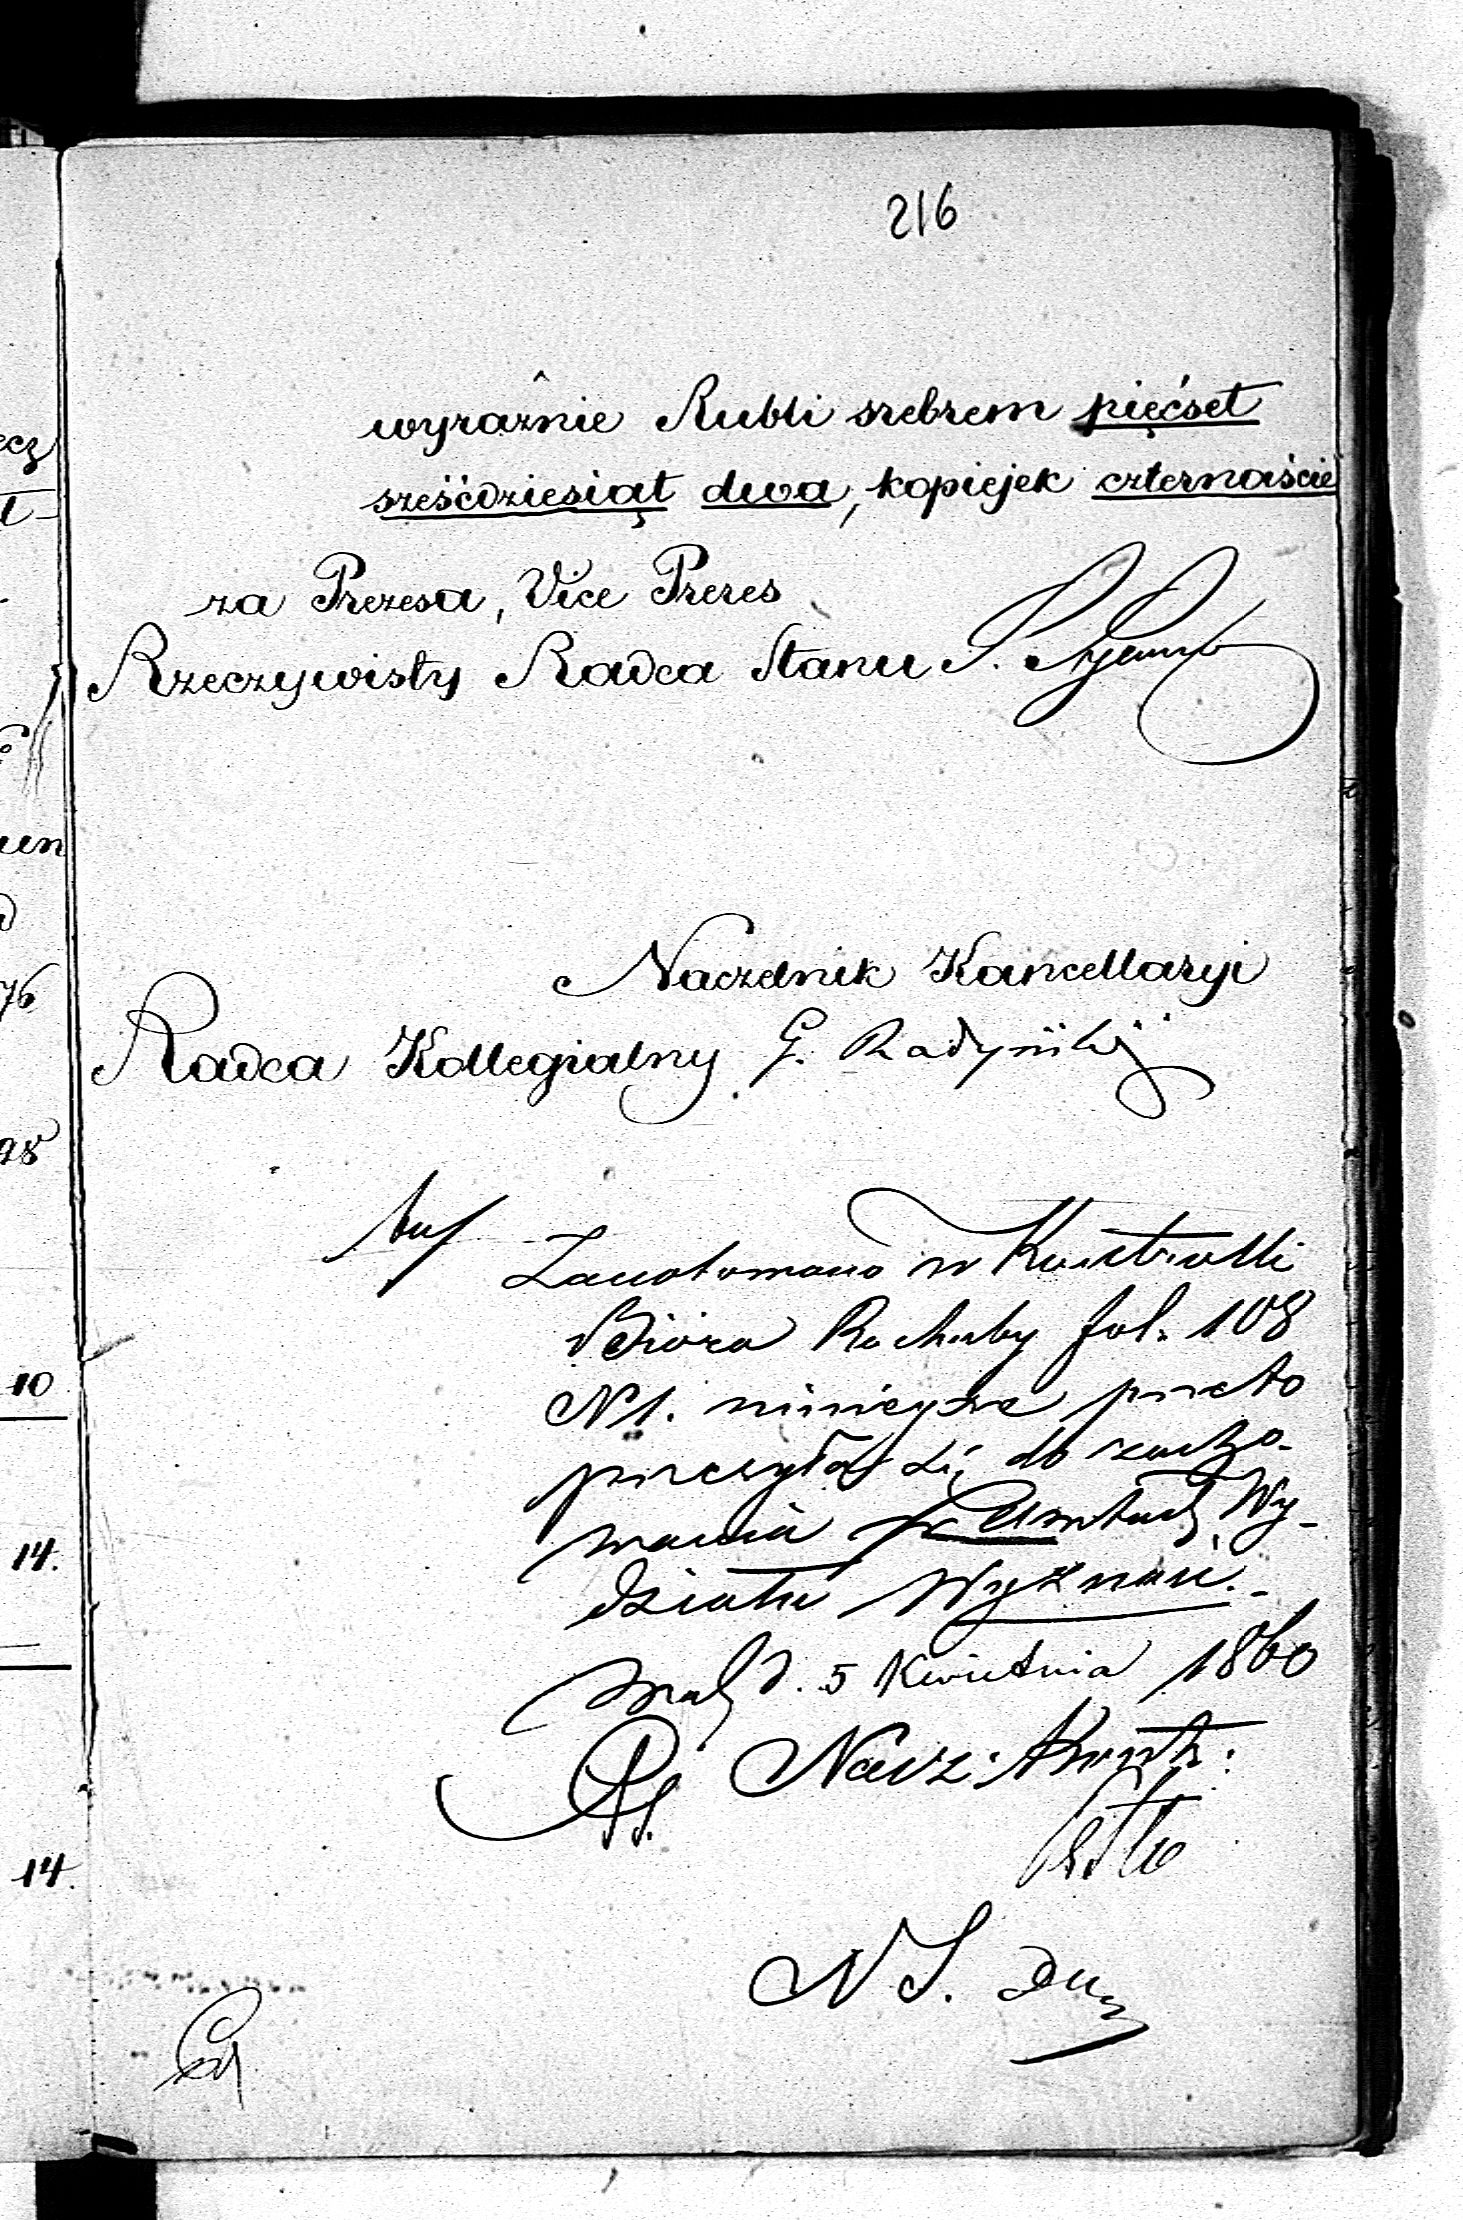 216
wyraźnie Rubli srebrem pięćset
sześćdziesiąt dwa, kopiejek czternaście
za Prezesa, Vice Prezes
Rzeczywisty Radca Stanu S.
Naczelnik Kancellaryi
Radca Kollegialny G. Radyński
Zanotowano w Kontrolli
Bióra Rachuby fol. 108
N 1. niniejsze przeto
przesyła się do zacho-
wania w Wy-
działu Wyznań.
d. 5 Kwietnia 1860
Nacz: Kontr:
N S.
ecz
un
76
98
10
14.
14.